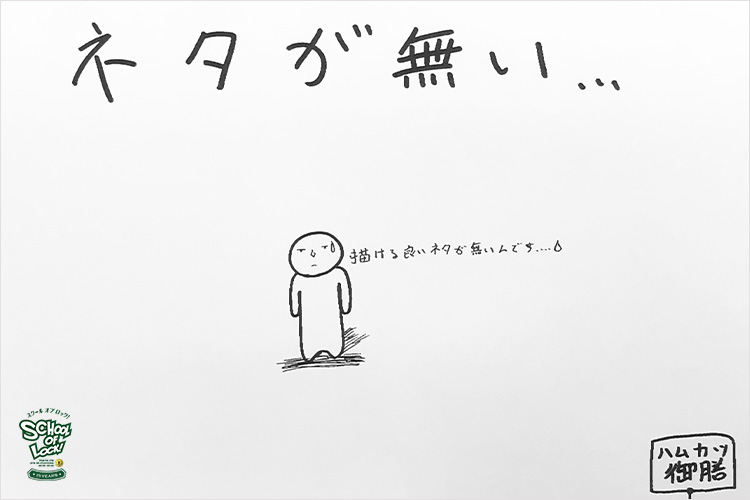 ネタが無い...
描ける良いネタが無いんです....
スクール オブ ロック!
SCHOOL
OF
LOCK!
ハムカツ
御膳